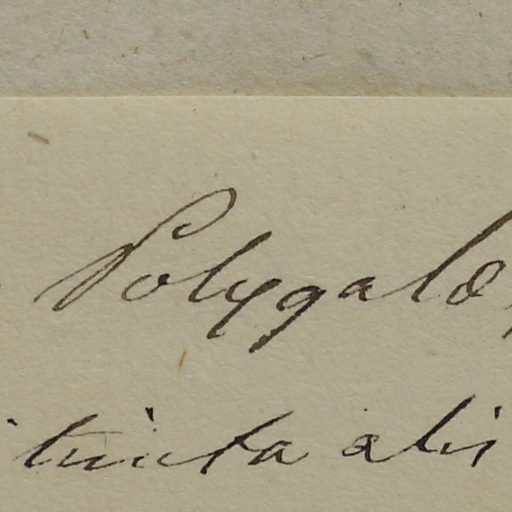 Polygalæ
tincta alis